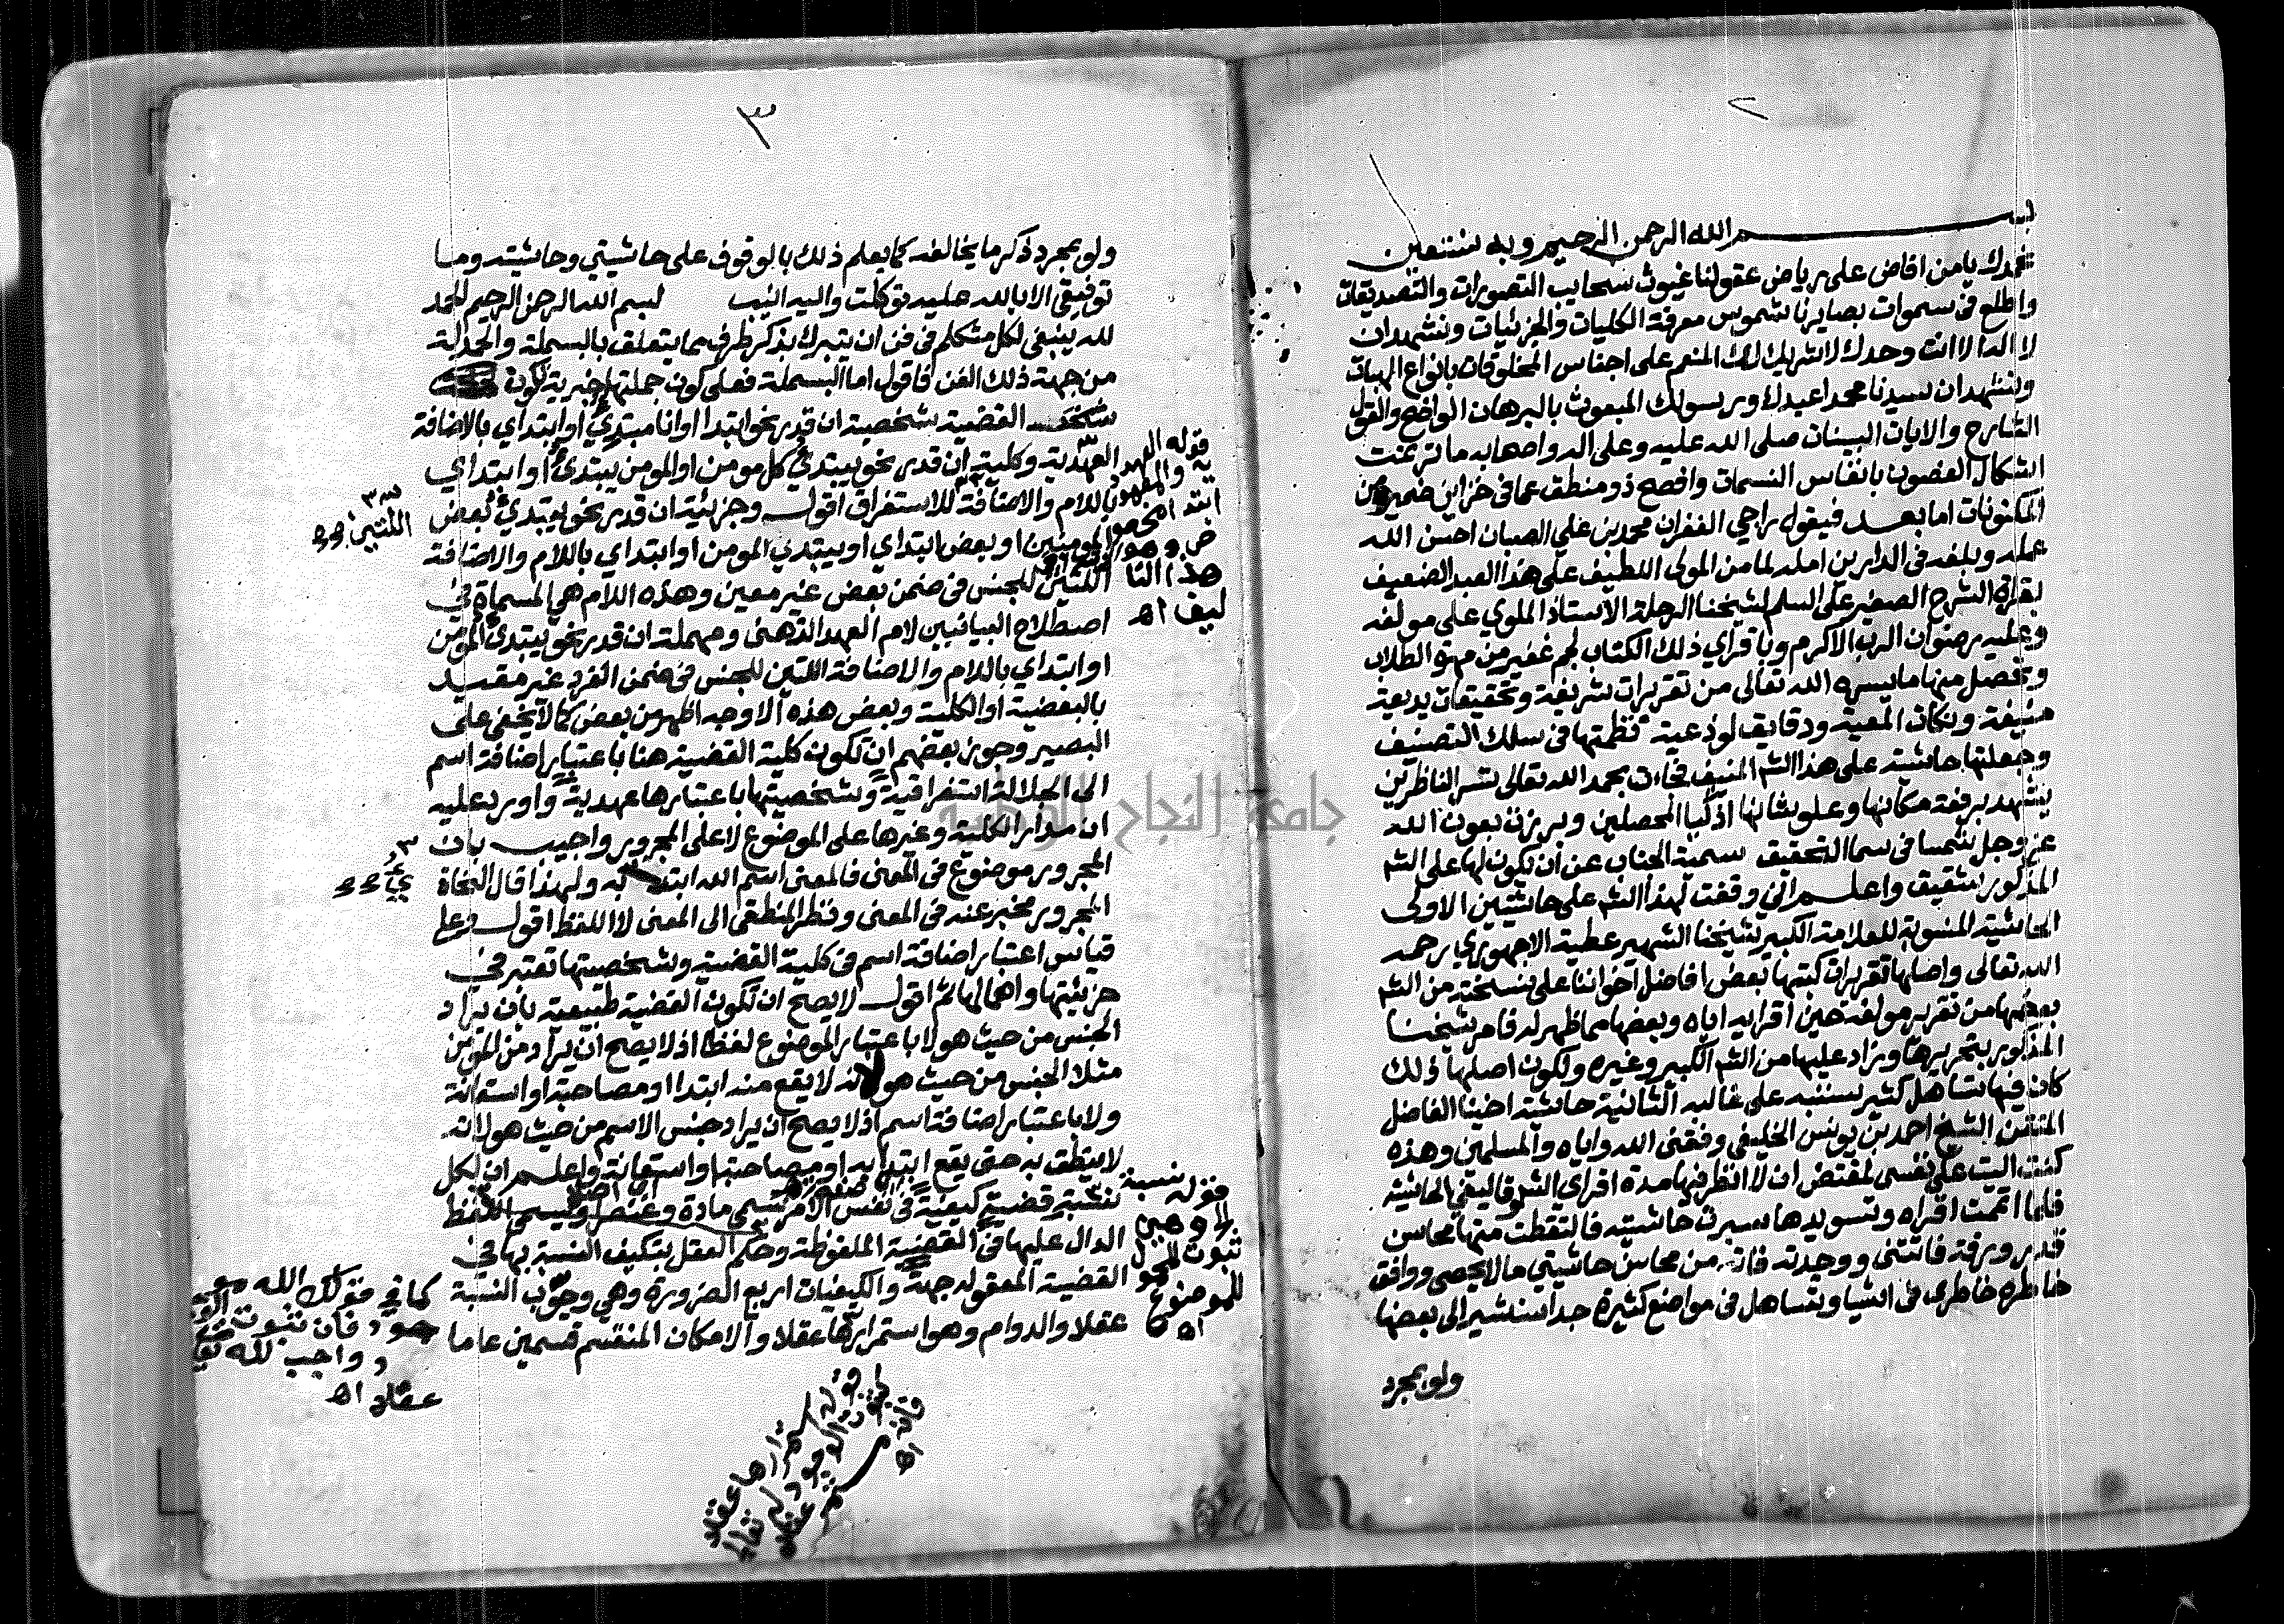 ٢
بسم الله الرحمن الرحيم وبه نستعين
نحمدك يا من افاض على رياض عقولنا غيوث سحايب التصورات والتصديقات
واطلع فى سموات بصايرنا شموس معرفة الكليات والجزئيات ونشهد ان
لا اله الا انت وحدك لا شريك لك المنعم على اجناس المخلوقات بانواع الهبات
ونشهد ان سيدنا محمدا عبدك ورسولك المبعوث بالبرهان الواضح والقول
الشارح والايات البينات صلى الله عليه وعلى اله واصحابه ما ترنمت
اشكال الغصون بانفاس النسمات وافصح ذو منطق عما فى خزاين ضميره من
المكنونات اما بعد فيقول راجي الغفران محمد بن علي الصبان احسن الله
عمله وبلغه فى الدارين امله لما من المولى اللطيف على هذا العبد الضعيف
بقراة الشرح الصغير على السلم لشيخنا الرحلة الاستاذ الملوي على مولفه
وعليه رضوان الرب الاكرم وباقراي ذلك الكتاب لجم غفير من مهرة الطلاب
وتحصل منها ما يسره الله تعالى من تقريرات شريفة وتحقيقات بديعة
منيفة ونكات المعية ودقايق لوذعية نظمتها فى سلك التصنيف
وجعلتها حاشية على هذا الشم المنيف فجاءت بحمد الله تعالى تسر الناظرين
يشهد برفعة مكانها وعلو شانها اذكيا المحصلين وبرزت بعون الله
عز وجل شمسا فى سما التحقيق سمية الجناب عن ان يكون لها على الشم
المذكور شقيق واعلم انى وقفت لهذا الشم على حاشيتين الاولى
الحاشية المنسوبة للعلامة الكبير شيخنا الشهير عطية الاجهوري رحمه
الله تعالى واصلها تقريرات كتبها بعض افاضل اخواننا على نسخته من الشم
بعضها من تقرير مولفه حين اقرايه اياه وبعضها مما ظهر له فامر شيخنا
المذكور بتحريرها وزاد عليها من الشم الكبير وغيره ولكون اصلها ذلك
كان فيها تساهل كثير سننبه على غالبه الثانية حاشية اخينا الفاضل
المتقن الشيخ احمد بن يونس الخليفي وفقنى الله واياه والمسلمين وهذه
كنت اليت على نفسى لمقتض ان لا انظر فيها مدة اقراي الشم وتاليفي الحاشية
فلما اتممت اقراه وتسويدها سبرت حاشيته فالتقطت منها محاسن
قدر ورقة فاتتنى ووجدته فاته من محاسن حاشيتي ما لا يحصى ووافق
خاطره خاطري فى اشيا وتساهل فى مواضع كثيرة جدا سنشير الى بعضها
ولو بمجرد
٣
ولو بمجرد ذكر ما يخالفه كما يعلم ذلك بالوقوف على حاشيتي وحاشيته وما
توفيقى الا بالله عليه توكلت واليه انيب بسم الله الرحمن الرحيم الحمد
لله ينبغى لكل متكلم فى فن ان يتبرك بذكر طرف مما يتعلق بالبسملة والحمدلة
من جهة ذلك الفن فاقول اما البسملة فعلى كون جملتها خبرية تكون
القضية شخصية ان قدر نحو ابتدا او انا مبتدئ او ابتداي بالاضافة
العهدية وكلية ان قدر نحو يبتدئ كل مومن او المومن يبتدئ او ابتداي
باللام والاضافة للاستغراق اقول وجزئية ان قدر نحو يبتدئ بعض
المومنين او بعض ابتداي او يبتدي المومن او ابتداي باللام والاضافة
اللتين للجنس فى ضمن بعض غير معين وهذه اللام هي المسماة في
اصطلاح البيانيين لام العهد الذهنى ومهملة ان قدر نحو يبتدئ المومن
او ابتداي باللام والاضافة اللتين للجنس فى ضمن الفرد غير مقيد
بالبعضية او الكلية وبعض هذه الاوجه اظهر من بعض كما لا يخفى على
البصير وجوز بعضهم ان تكون كلية القضية هنا باعتبار اضافة اسم
الى الجلالة استغراقية وشخصيتها باعتبارها عهدية واورد عليه
ان مدار الكلية وغيرها على الموضوع لا على المجرور واجيب بان
المجرور موضوع فى المعنى فالمعنى اسم الله ابتدئ به ولهذا قال النحاة
المجرور مخبر عنه فى المعنى ونظر المنطقى الى المعنى لا اللفظ اقول وعلى
قياس اعتبار اضافة اسم فى كلية القضية وشخصيتها تعتبر فى
جزئيتها واهمالها ثم اقول لا يصح ان تكون القضية طبيعية بان يراد
الجنس من حيث هو لا باعتبار الموضوع لفظا اذ لا يصح ان يراد من المومن
مثلا الجنس من حيث هو لانه لا يقع منه ابتدا او مصاحبة او استعانة
ولا باعتبار اضافة اسم اذ لا يصح ان يراد جنس الاسم من حيث هو لانه
لا ينطق به حتى يقع ابتدا به او مصاحبة او استعانة واعلم ان لكل
نسبة قضية كيفية فى نفس الامر تسمى مادة وعنصرا ويسمى اللفظ
الدال عليها فى القضية الملفوظة وحكم العقل بتكيف النسبة بها في
القضية المعقوله جهة والكيفيات اربع الضرورة وهي وجوب النسبة
عقلا والدوام وهو استمرارها عقلا والامكان المنقسم قسمين عاما
هذا التا
ليف اه
قوله نسبة
ثبوت المحمو
للموضوع
اه
كما في قولك الله مو
جود فان ثبوت
واجب لله
عقلا اه